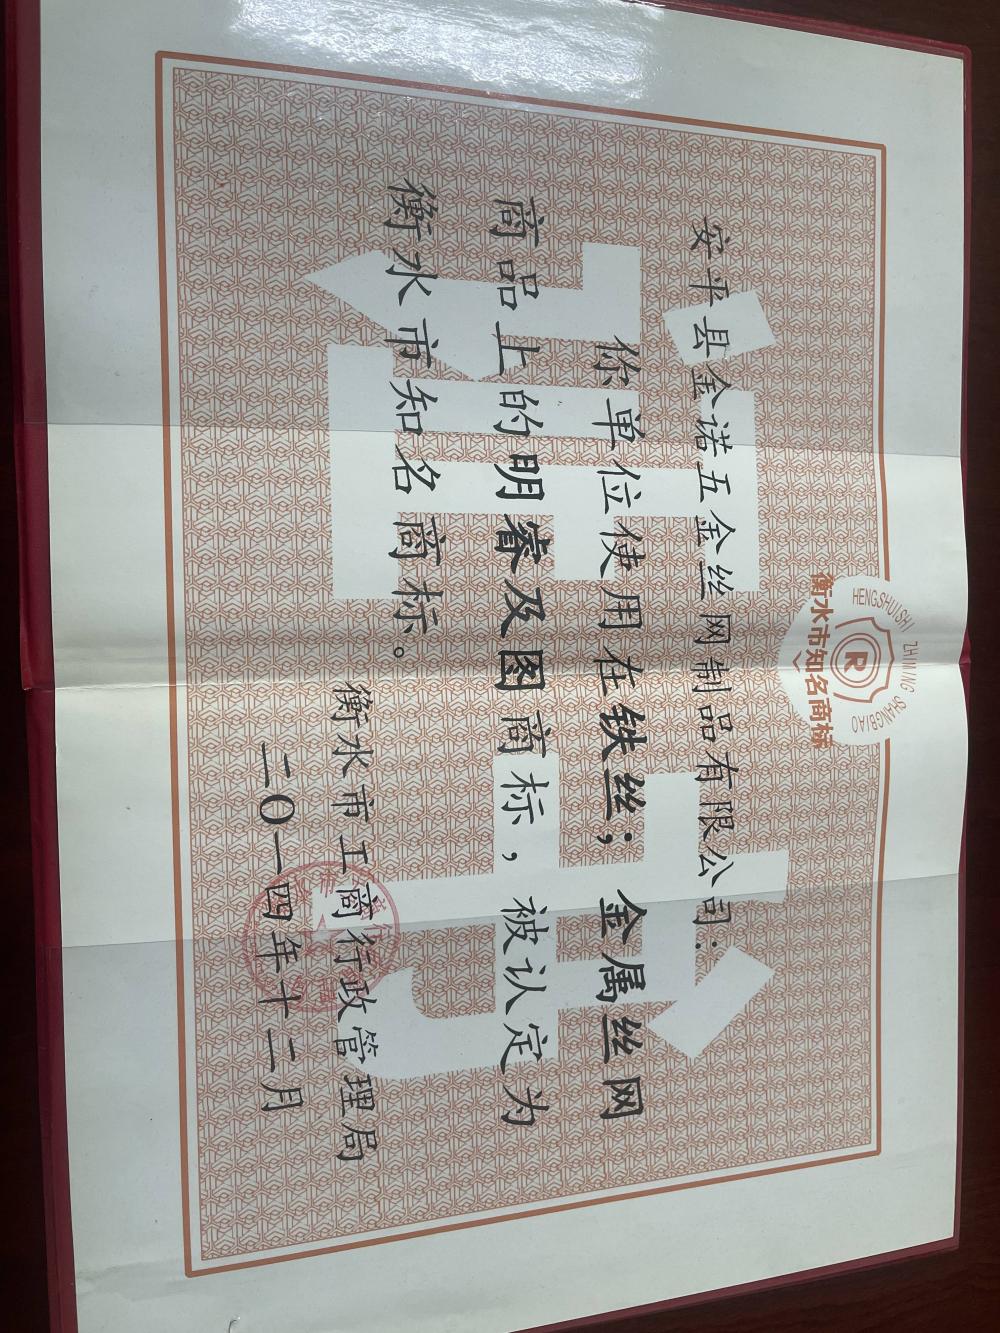 HENGSHUISHI ZHIMING SHANGBIAO
R
衡水市知名商标
安平县金诺五金丝网制品有限公司：
你单位使用在铁丝；金属丝网
商品上的明睿及图商标，被认定为
衡水市知名商标。
衡水市工商行政管理局
二〇一四年十二月